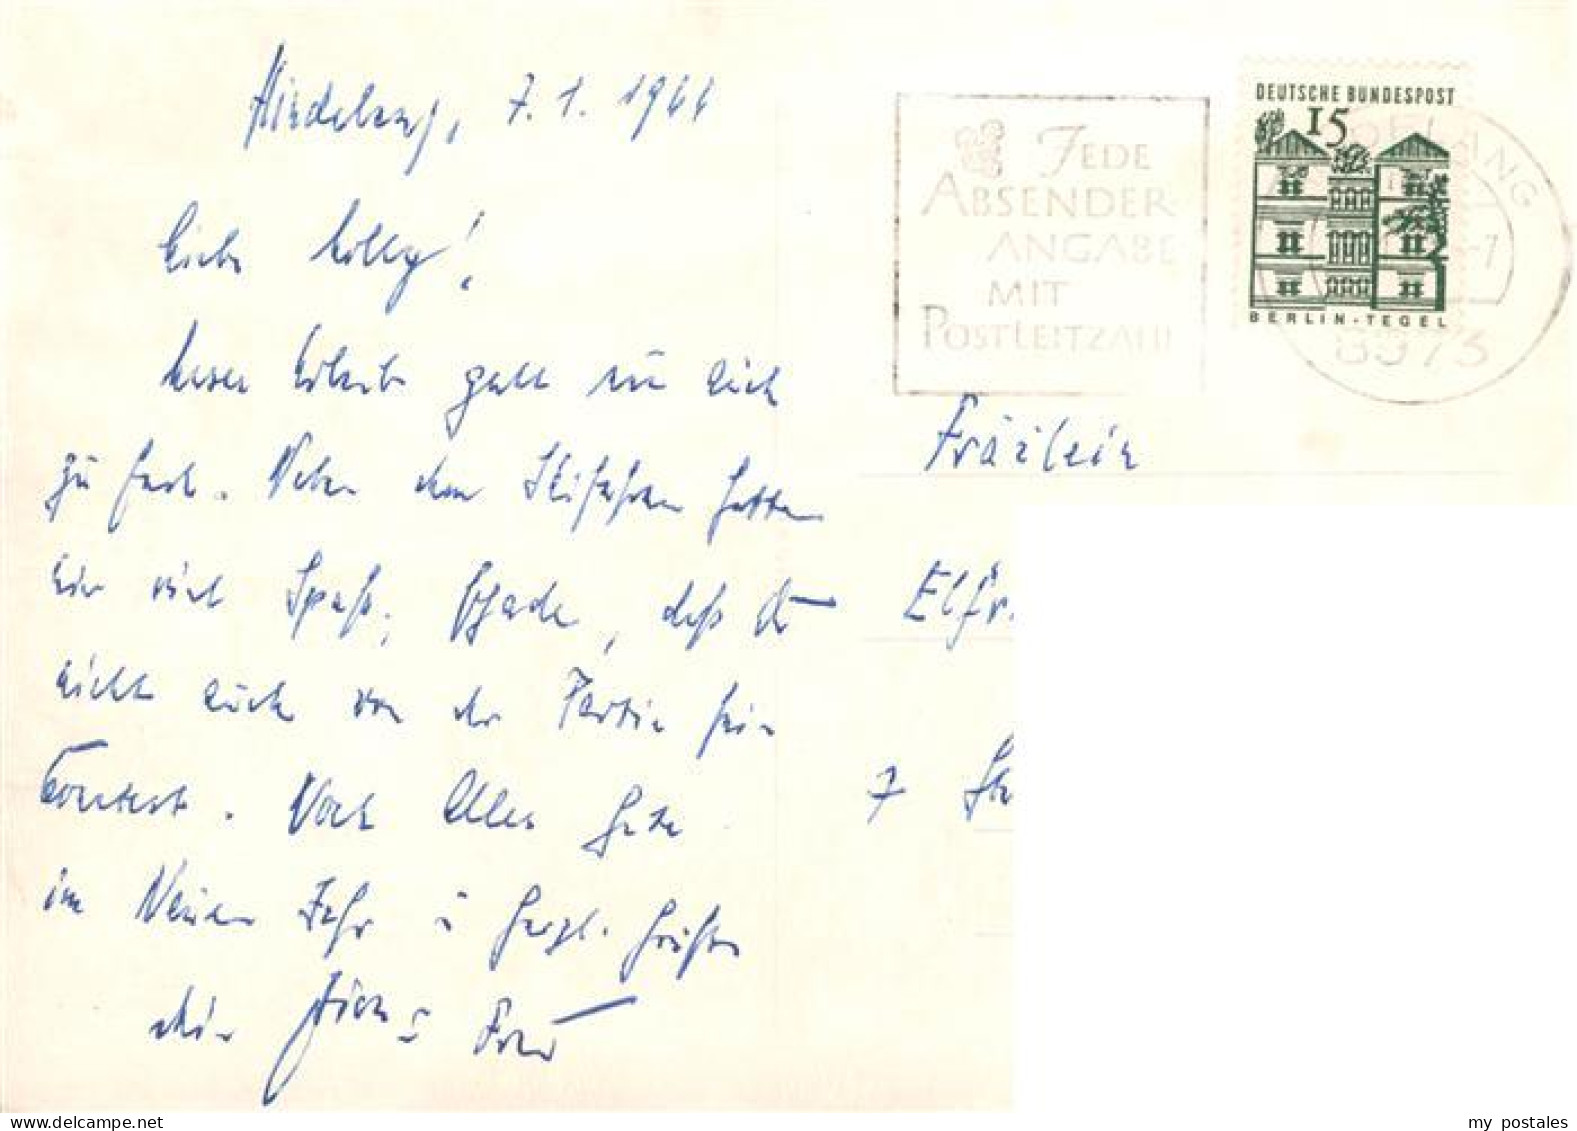 7.1.1966
Liebe Molly!
Unser Urlaub geht nun auch
zu Ende. Neben dem Skifahren hatten
wir viel Spaß. Schade, daß du
nicht auch von der Partie sein
konntest. Noch Alles Gute
im Neuen Jahr u herzl. Grüße
JEDE
ABSENDER-
ANGABE
MIT
POSTLEITZAHL
DEUTSCHE BUNDESPOST
15
BERLIN-TEGEL
8973
Fräulein
Elfr
7
my postales